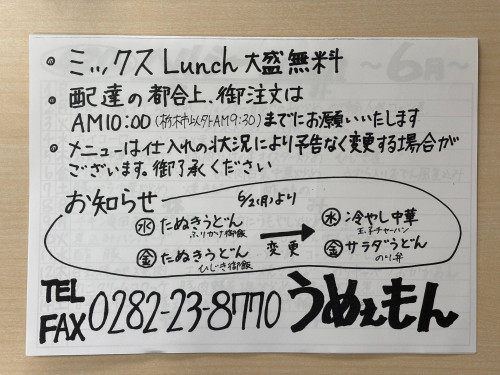 • ミックスLunch 大盛無料
• 配達の都合上、御注文は
AM10:00(栃木市以外AM9:30)までにお願いいたします
• メニューは仕入れの状況により予告なく変更する場合が
ございます。御了承ください
お知らせ 6/2(月)より
㊌ たぬきうどん
ふりかけ御飯
㊎ たぬきうどん
ひじき御飯
変更
㊌ 冷やし中華
玉子チャーハン
㊎ サラダうどん
のり弁
TEL
FAX 0282-23-8770 うめぇもん